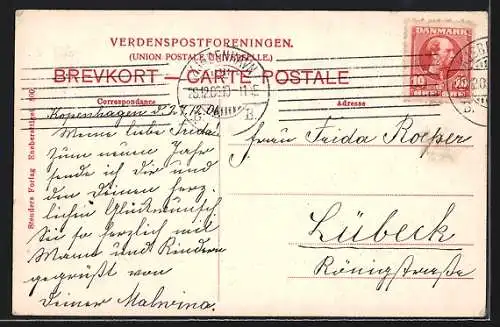 VERDENSPOSTFORENINGEN.
(UNION POSTALE UNIVERSELLE.)
BREVKORT — CARTE POSTALE
Correspondance
Adresse
DANMARK
10 10
KJØBENHAVN
B.
Kopenhagen d. 12.06
Meine liebe Frida!
zum neuen Jahr
sende ich dir und
den Deinen herz-
lichen Glückwunsch
Sei so herzlich mit
Mann und Kindern
gegrüßt von
deiner Malwina.
Frau Frida Roeper
Lübeck
Königstraße
Stenders Forlag Eneberettiget